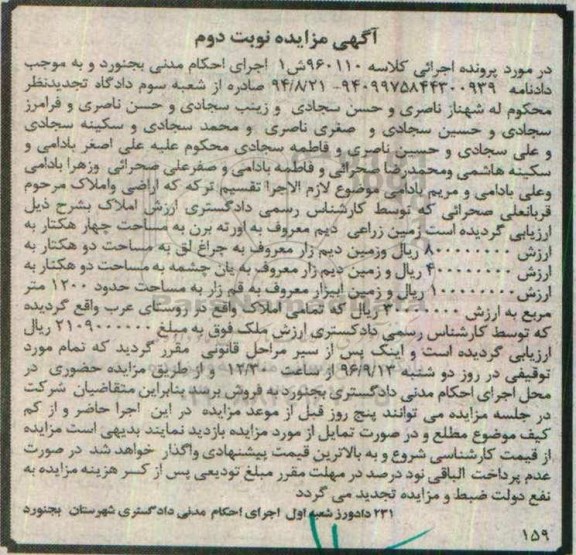 آگهی مزایده نوبت دوم
در مورد پرونده اجرائی کلاسه ۹۶۰۱۱۰ش۱ اجرای احکام مدنی بجنورد و به موجب
دادنامه ۹۴۰۹۹۷۵۸۴۴۳۰۰۹۳۹- ۹۴/۸/۲۱ صادره از شعبه سوم دادگاه تجدیدنظر
محکوم له شهناز ناصری و حسن سجادی و زینب سجادی و حسن ناصری و فرامرز
سجادی و حسین سجادی و صغری ناصری و محمد سجادی و سکینه سجادی
و علی سجادی و حسین ناصری و فاطمه سجادی محکوم علیه علی اصغر بادامی و
سکینه هاشمی ومحمدرضا صحرائی و فاطمه بادامی و صفرعلی صحرائی وزهرا بادامی
وعلی بادامی و مریم بادامی موضوع لازم الاجرا تقسیم ترکه که اراضی واملاک مرحوم
قربانعلی صحرائی که توسط کارشناس رسمی دادگستری ارزش املاک بشرح ذیل
ارزیابی گردیده است زمین زراعی دیم معروف به اورته برن به مساحت چهار هکتار به
ارزش ریال وزمین دیم زار معروف به چراغ لق به مساحت دو هکتار به
ارزش ریال و زمین دیم زار معروف به یان چشمه به مساحت دو هکتار به
ارزش ریال و زمین آبیزار معروف به قم زار به مساحت حدود ۱۲۰۰ متر
مربع به ارزش ریال که تمامی املاک واقع در روستای عرب واقع گردیده
که توسط کارشناس رسمی دادگستری ارزش ملک فوق به مبلغ ۲۱۰۹۰۰۰۰۰۰ ریال
ارزیابی گردیده است و اینک پس از سیر مراحل قانونی مقرر گردید که تمام مورد
توقیفی در روز دو شنبه ۹۶/۹/۱۳ از ساعت ۱۲/۳۰ و از طریق مزایده حضوری در
محل اجرای احکام مدنی دادگستری بجنورد به فروش برسد بنابراین متقاضیان شرکت
در جلسه مزایده می توانند پنج روز قبل از موعد مزایده در این اجرا حاضر و از کم
کیف موضوع مطلع و در صورت تمایل از مورد مزایده بازدید نمایند بدیهی است مزایده
از قیمت کارشناسی شروع و به بالاترین قیمت پیشنهادی واگذار خواهد شد در صورت
عدم پرداخت الباقی نود درصد در مهلت مقرر مبلغ تودیعی پس از کسر هزینه مزایده به
نفع دولت ضبط و مزایده تجدید می گردد
۲۳۱ دادورز شعبه اول اجرای احکام مدنی دادگستری شهرستان بجنورد
۱۵۹